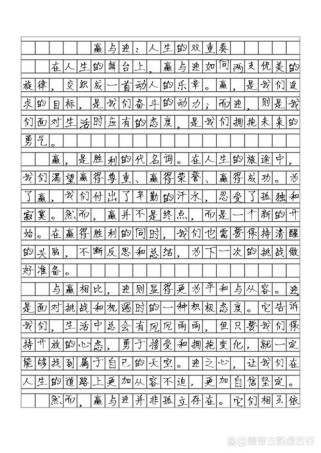 赢与迎：人生的双重奏
在人生的舞台上，赢与迎如同两支优美的
旋律，交织成一首动人的乐章。赢，是我们追
求的目标，是我们奋斗的动力；而迎，则是我
们面对生活时应有的态度，是我们拥抱未来的
勇气。
赢，是胜利的代名词。在人生的旅途中，
我们渴望赢得尊重、赢得荣誉、赢得成功。为
了赢，我们付出了辛勤的汗水，忍受了孤独和
寂寞。然而，赢并不是终点，而是一个新的开
始。在赢得胜利的同时，我们也需要保持清醒
的头脑，不断反思和总结，为下一次的挑战做
好准备。
与赢相比，迎则显得更为平和与从容。迎
是面对挑战和机遇时的一种积极态度。它告诉
我们，生活中总会有风风雨雨，但只要我们保
持开放的心态，勇于接受和拥抱变化，就一定
能够找到属于自己的天空。迎之心，让我们在
人生的道路上更加从容不迫，更加自信坚定。
然而，赢与迎并非孤立存在。它们相互依